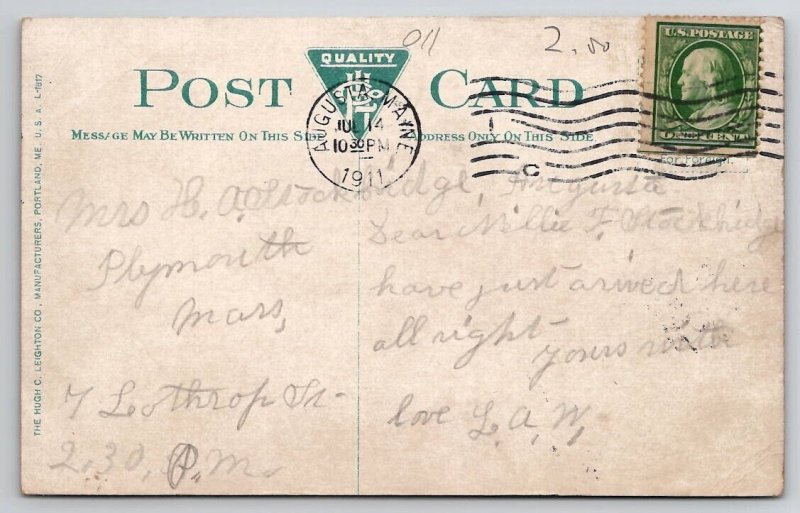 011
2.00
QUALITY
POST CARD
U.S. POSTAGE
MESSAGE MAY BE WRITTEN ON THIS SIDE
ADDRESS ONLY ON THIS SIDE
AUGUSTA, MAINE
JUL 14
10 30 PM
1911
C
For Foreign
THE HUGH C. LEIGHTON CO., MANUFACTURERS, PORTLAND, ME. U.S.A. L-1817
Mrs H. A. Stockbridge,
Plymouth
Mass,
7 Lothrop St-
2.30. P.M.
Augusta
Dear Nellie F. Stockbridge
have just arived here
all right
yours with
love L. A. W,